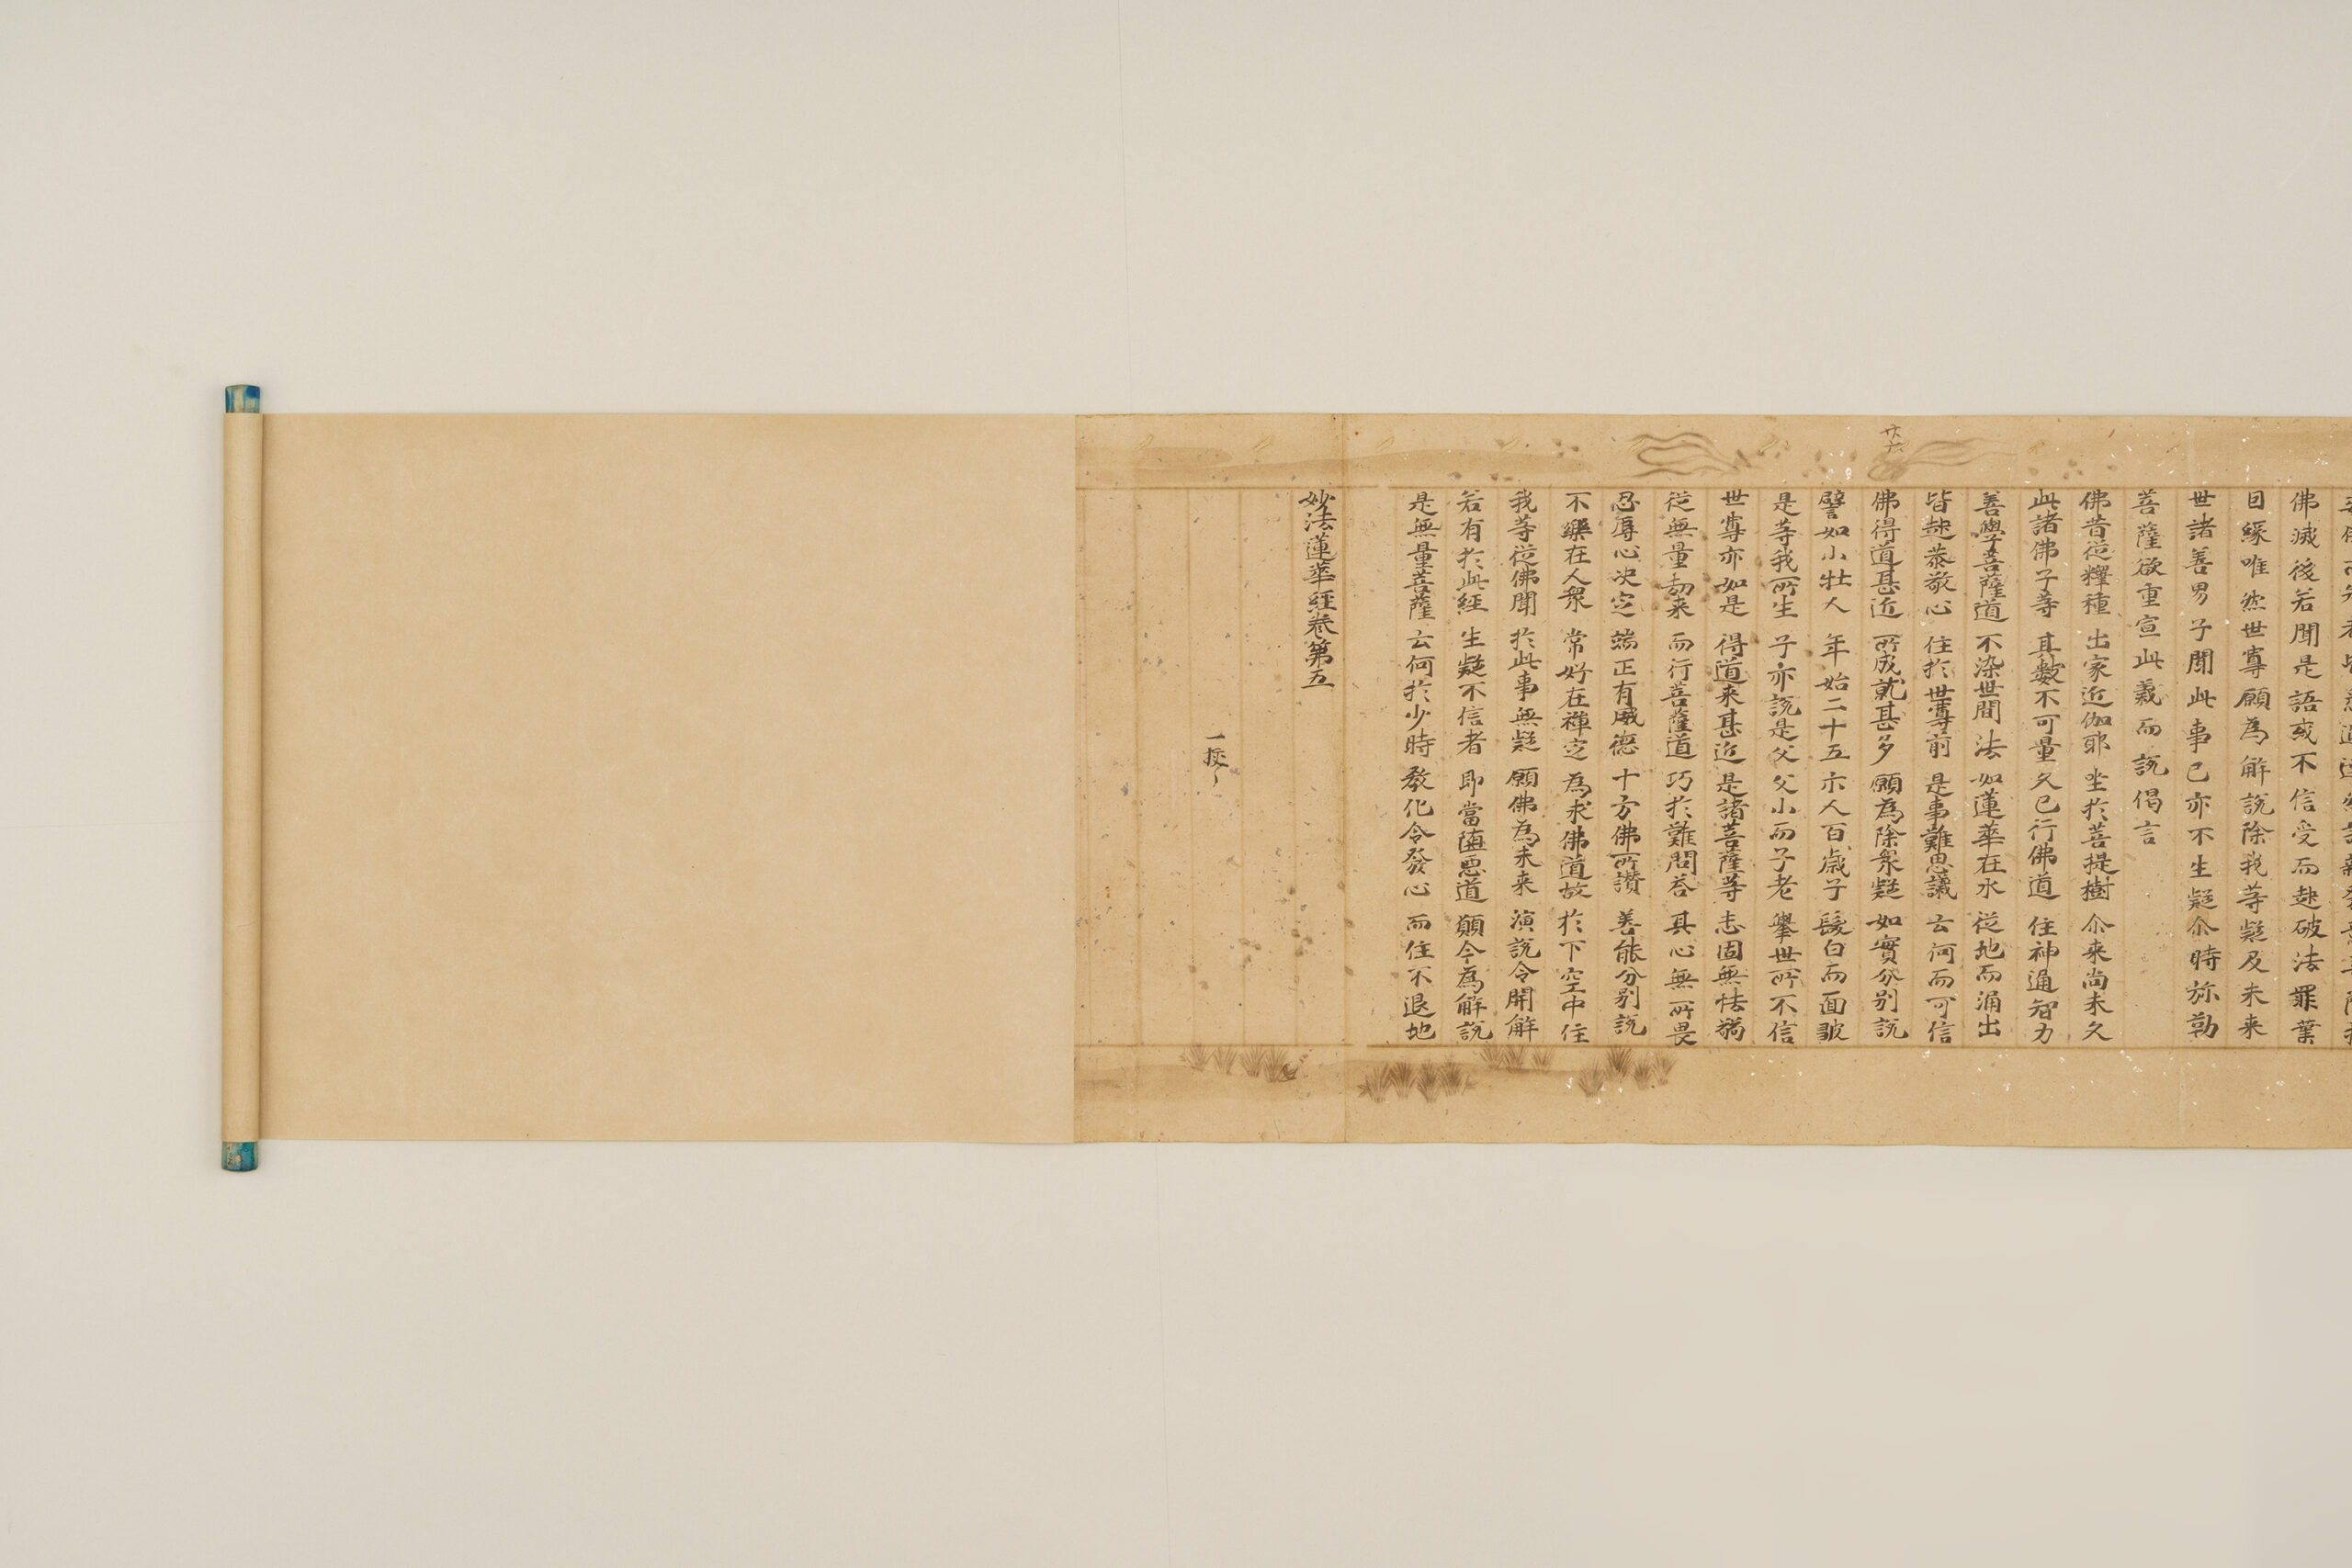 佛滅後若聞是語或不信受而起破法罪業
因緣唯然世尊願為解說除我等疑及未来
世諸善男子聞此事已亦不生疑尒時弥勒
菩薩欲重宣此義而說偈言
佛昔從釋種 出家近伽耶 坐於菩提樹 尒来尚未久
此諸佛子等 其數不可量 久已行佛道 住神通智力
善學菩薩道 不染世間法 如蓮華在水 從地而涌出
皆起恭敬心 住於世尊前 是事難思議 云何而可信
佛得道甚近 所成就甚多 願為除衆疑 如實分別說
廿六
譬如小壮人 年始二十五 示人百歳子 髮白而面皺
是等我所生 子亦說是父 父小而子老 舉世所不信
世尊亦如是 得道来甚近 是諸菩薩等 志固無怯弱
從無量劫来 而行菩薩道 巧於難問荅 其心無所畏
忍辱心决定 端正有威德 十方佛所讃 善能分別說
不樂在人衆 常好在禪定 為求佛道故 於下空中住
我等從佛聞 於此事無疑 願佛為未来 演說令開解
若有於此經 生疑不信者 即當墮惡道 願今為解說
是無量菩薩 云何於少時 教化令發心 而住不退地
妙法蓮華經卷第五
一挍了